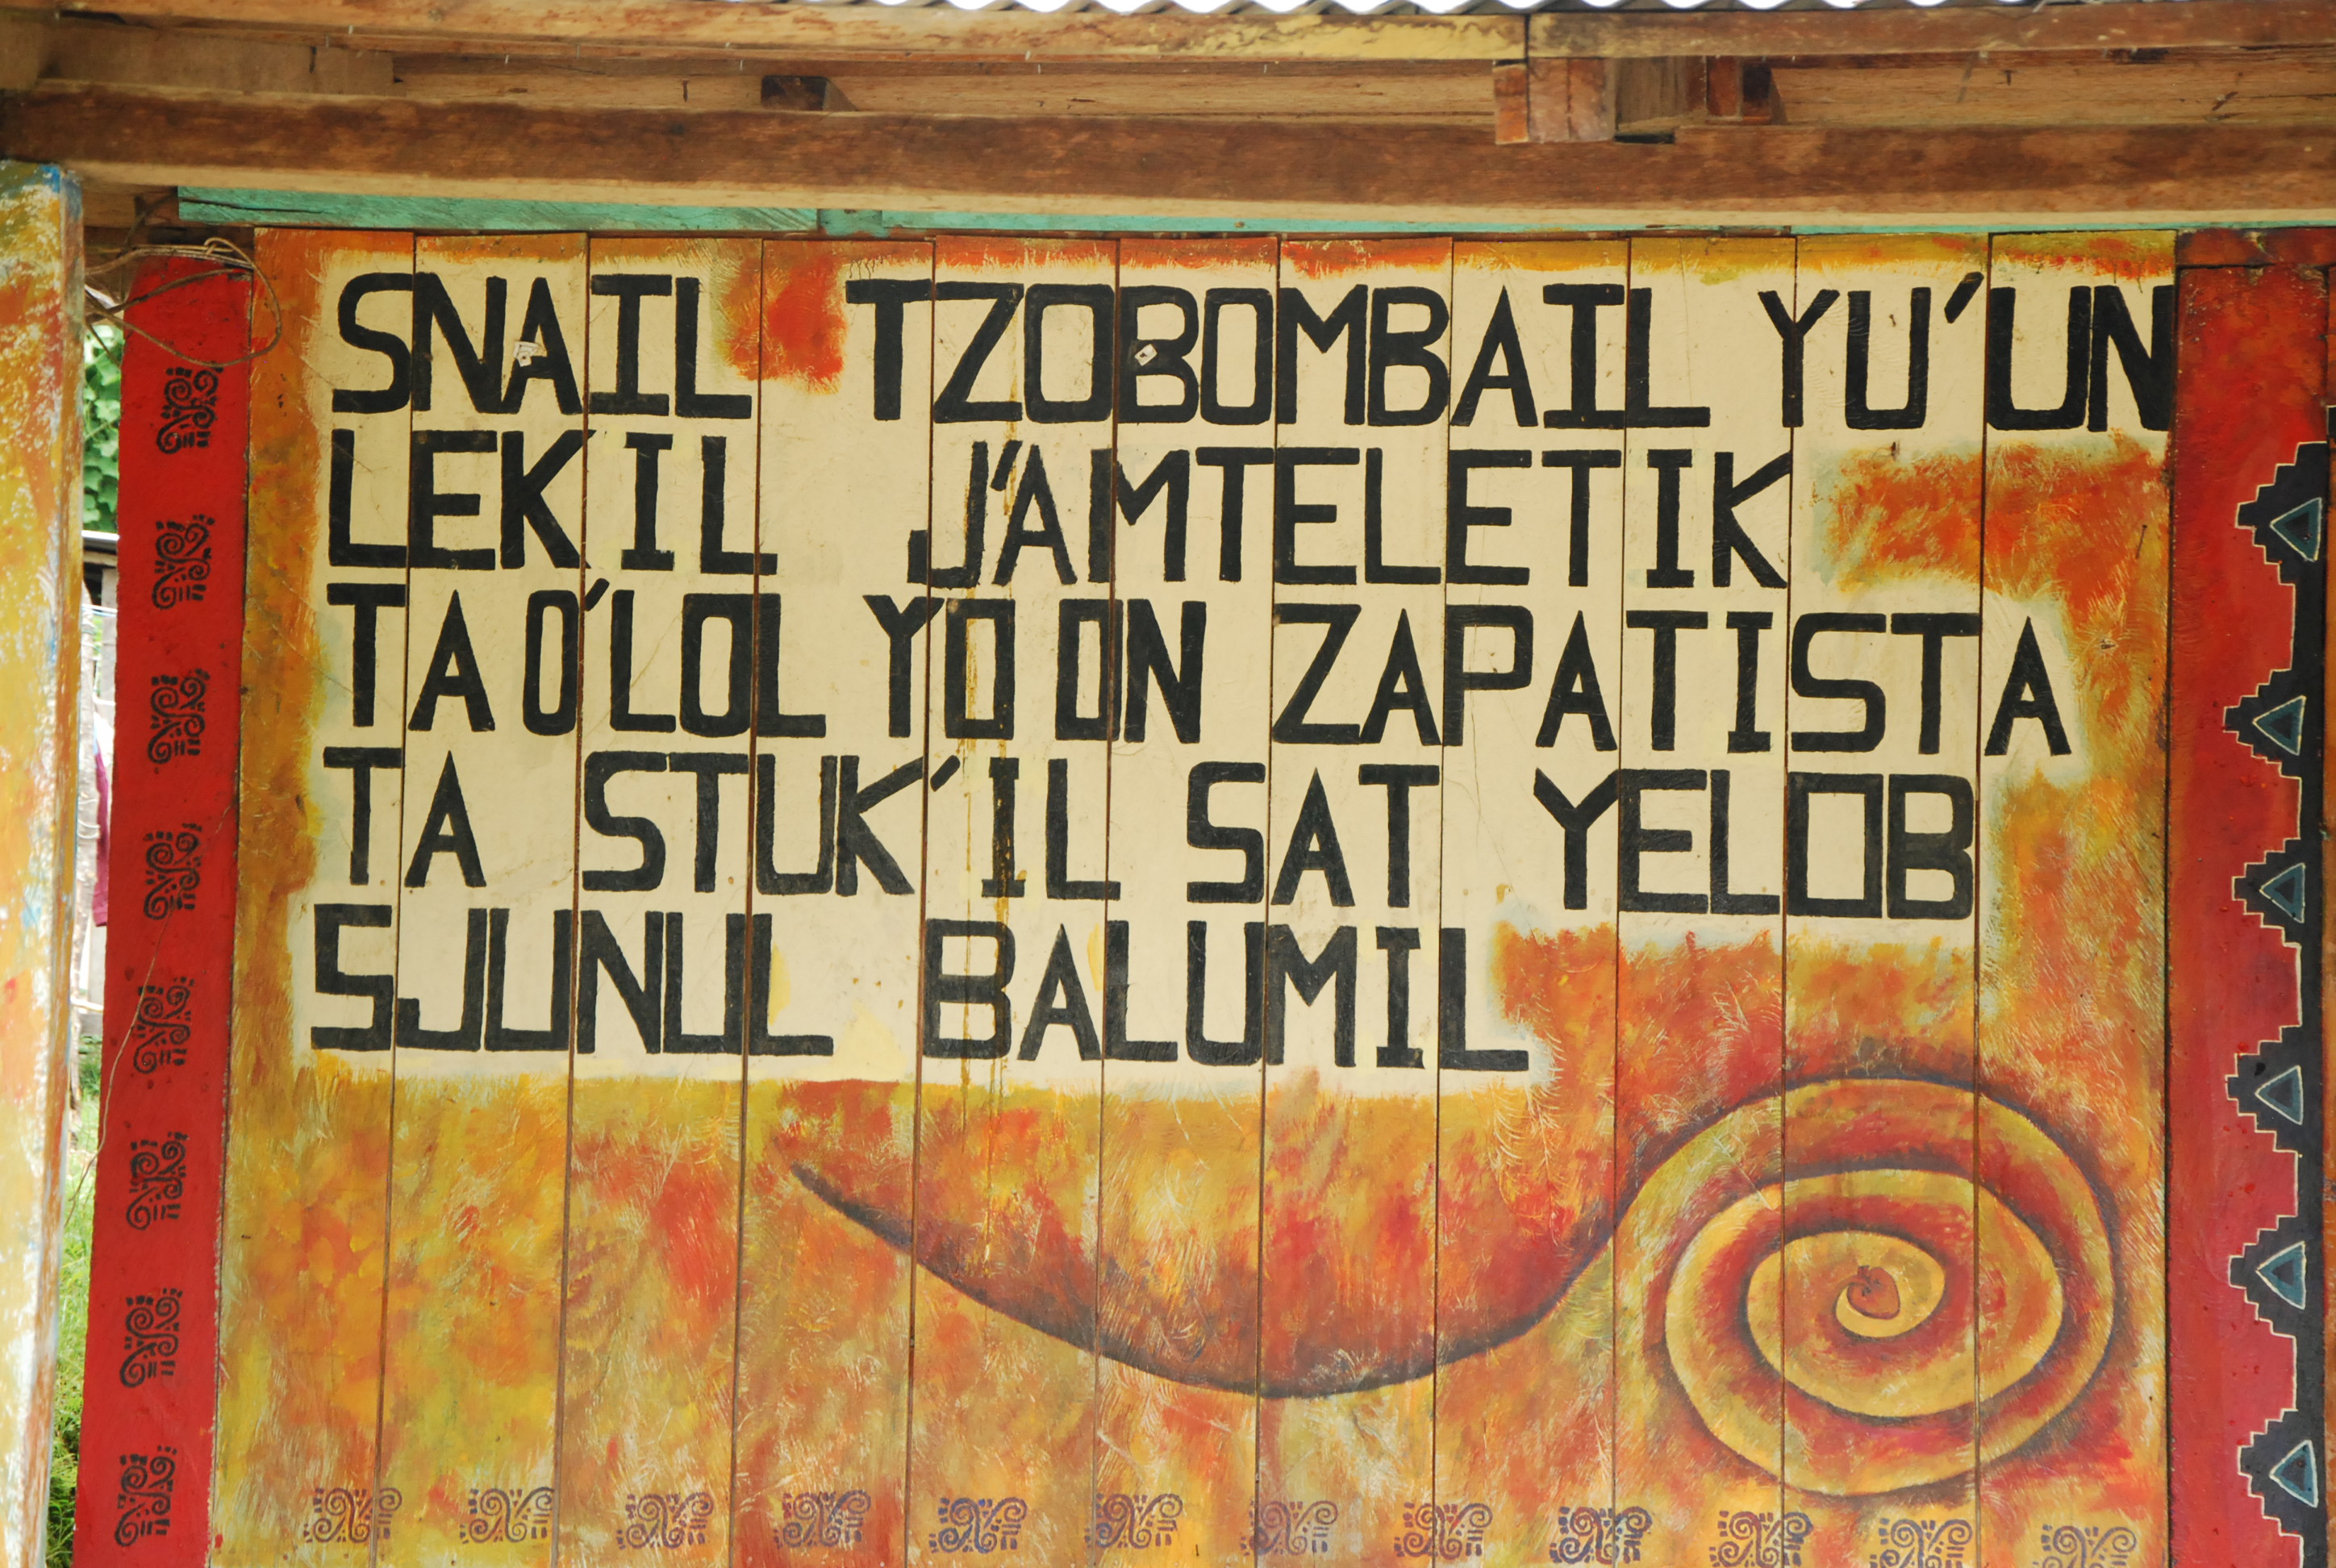 SNAIL TZOBOMBAIL YU'UN
LEKIL J'AMTELETIK
TA O'LOL YO'ON ZAPATISTA
TA STUK'IL SAT YELOB
SJUNUL BALUMIL